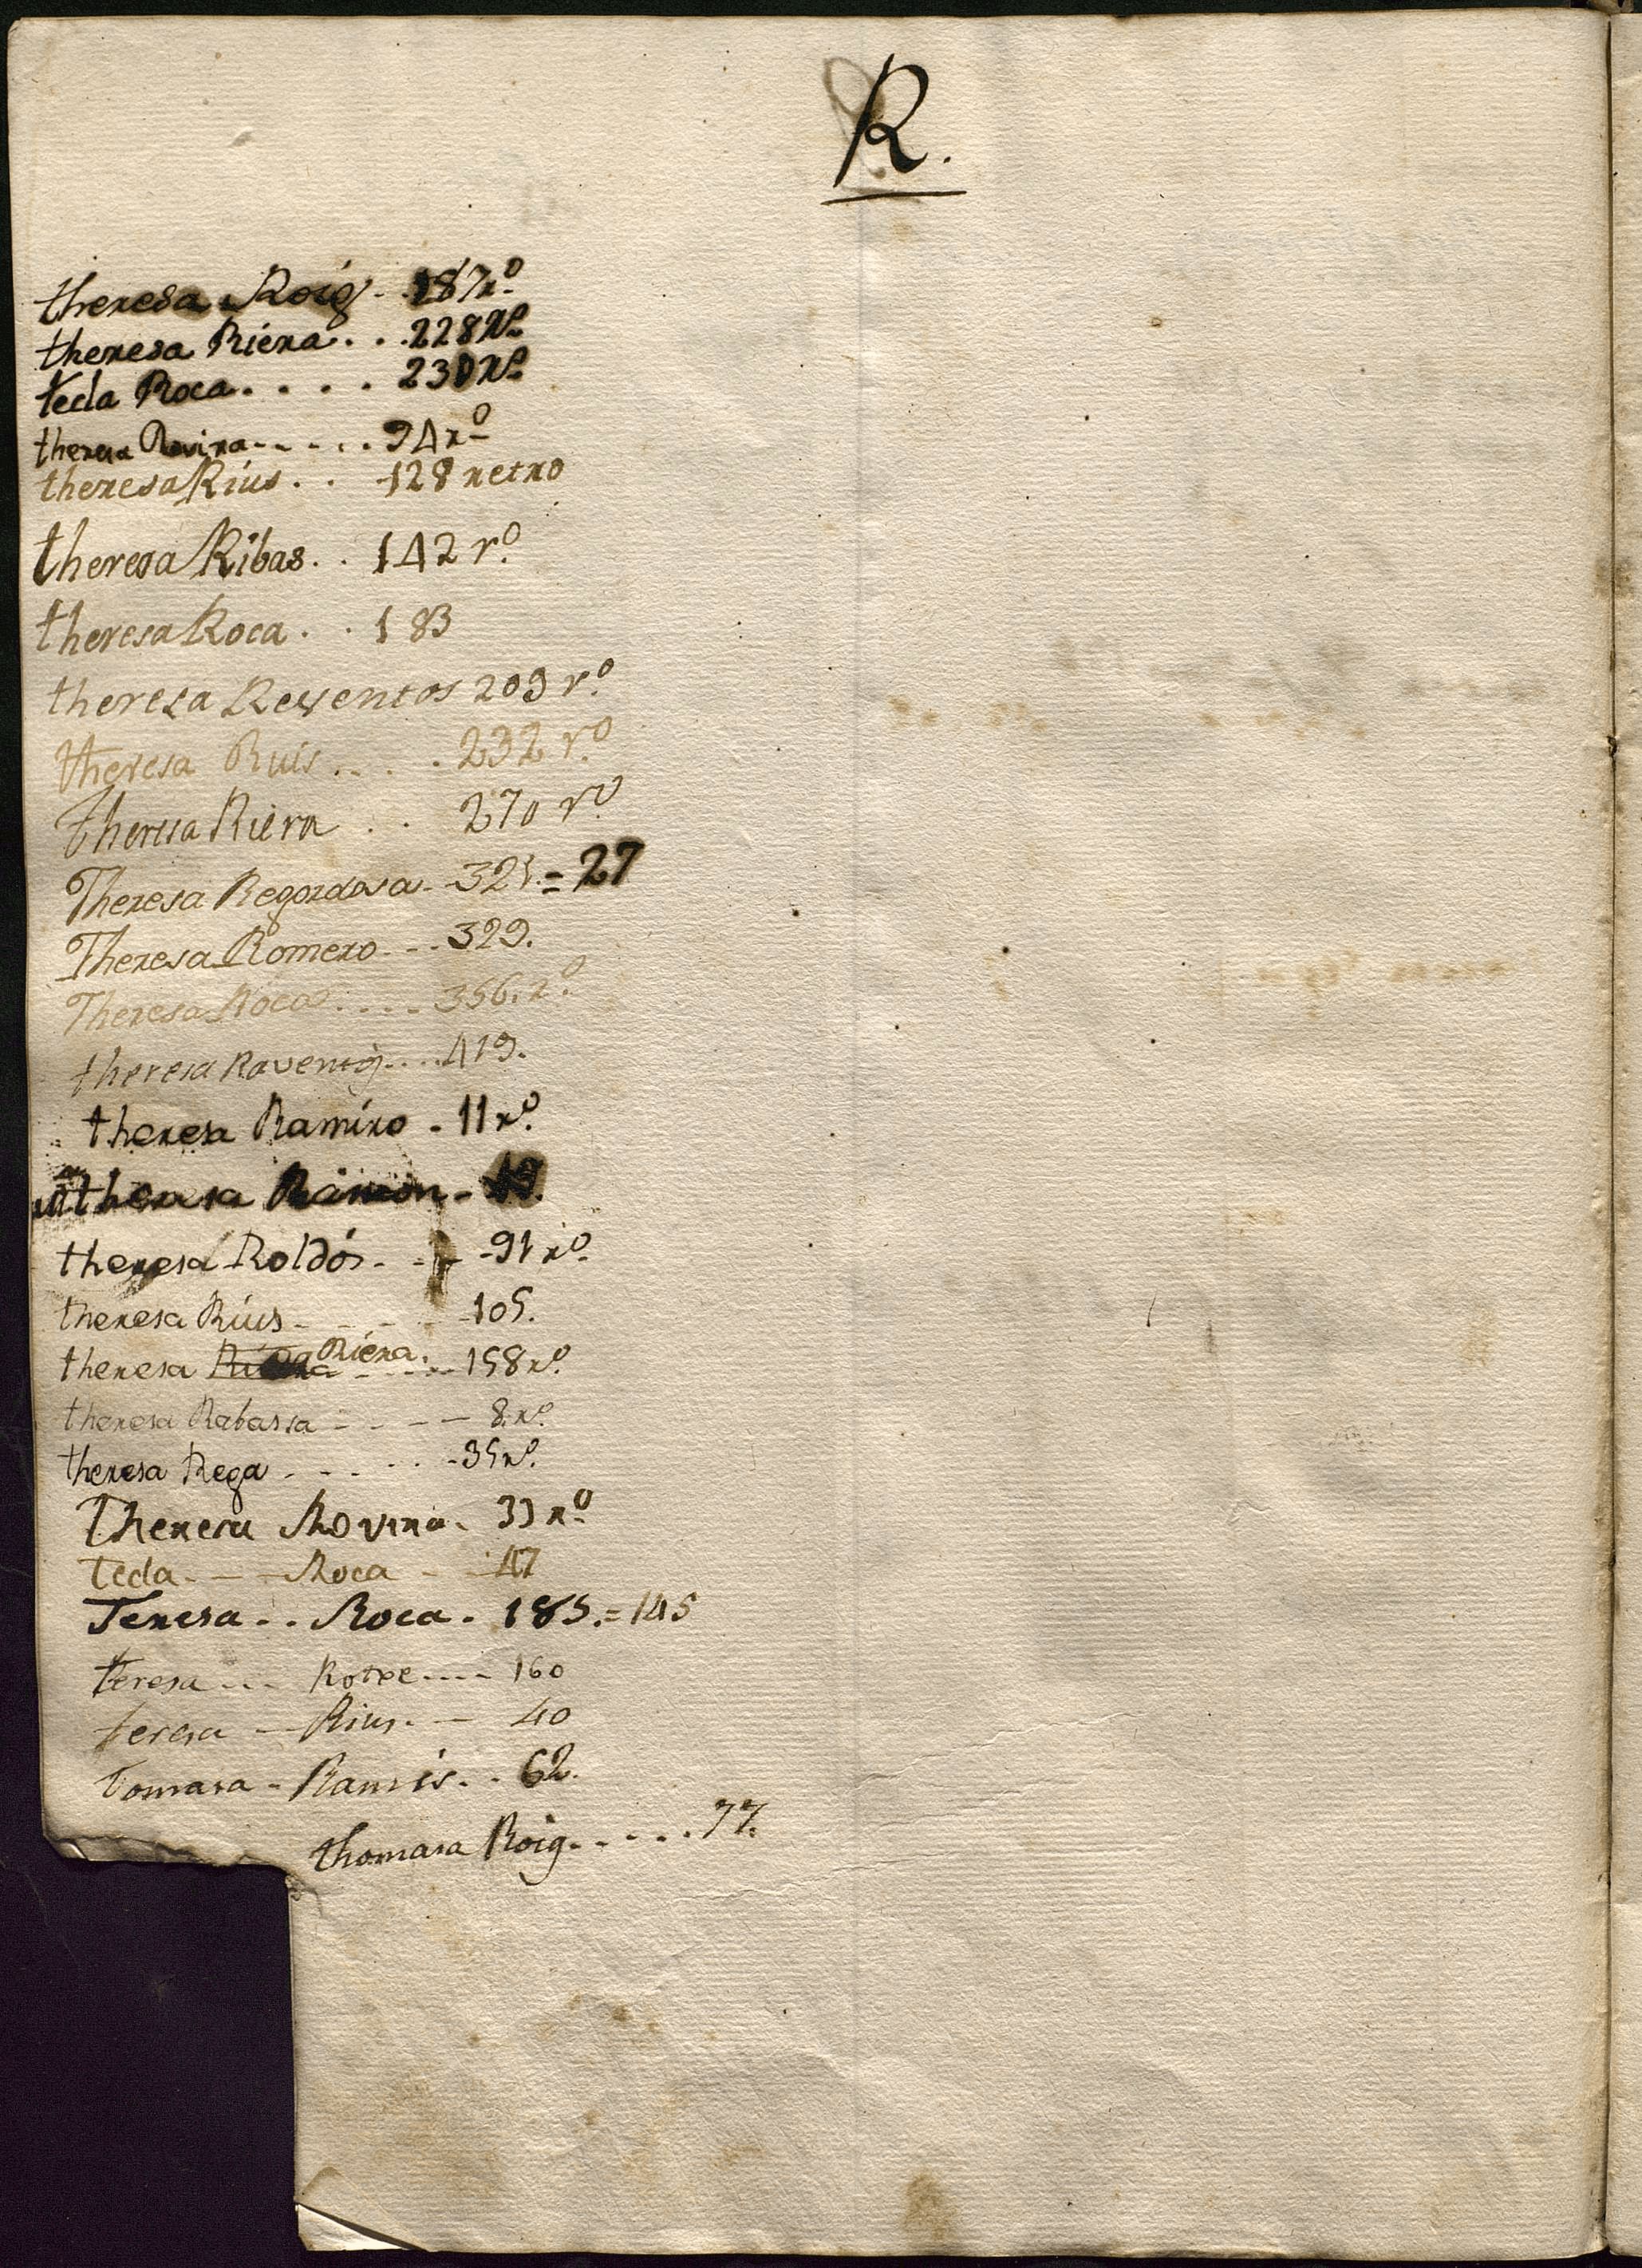 R.
theresa Roig - 187 rº
theresa Riera . . . 228 Rº
tecla Roca . . . . 230 Rº
theresa Rovira - - - . . . 94 rº
theresa Rius . . 128 retro
theresa Ribas . . 142 rº
theresa Roca . . 183
theresa Reventos 209 rº
theresa Ruis . . . . 232 rº
Theresa Riera . . 270 rº
Theresa Regordosa - 321. = 27
Theresa Romero - - - 329.
Theresa Roca . . . . 356. rº
theresa Raventos . . . 419.
theresa Ramiro - 11 rº
theresa Ramon -
theresa Roldós - - - 91 rº
theresa Rius - - - - 105.
theresa Riera - - - - 158 rº
theresa Rabassa - - - - 8. rº
theresa Rega - - - - . . - 35 rº
Theresa Rovira - 33 rº
Tecla - - - Roca - - 47
Teresa - . Roca - 185. = 145
teresa - - - Rotxe - - - - 160
teresa - Rius. - 40
Tomasa - Ramis . . 62.
thomasa Roig - - - - . . 77.